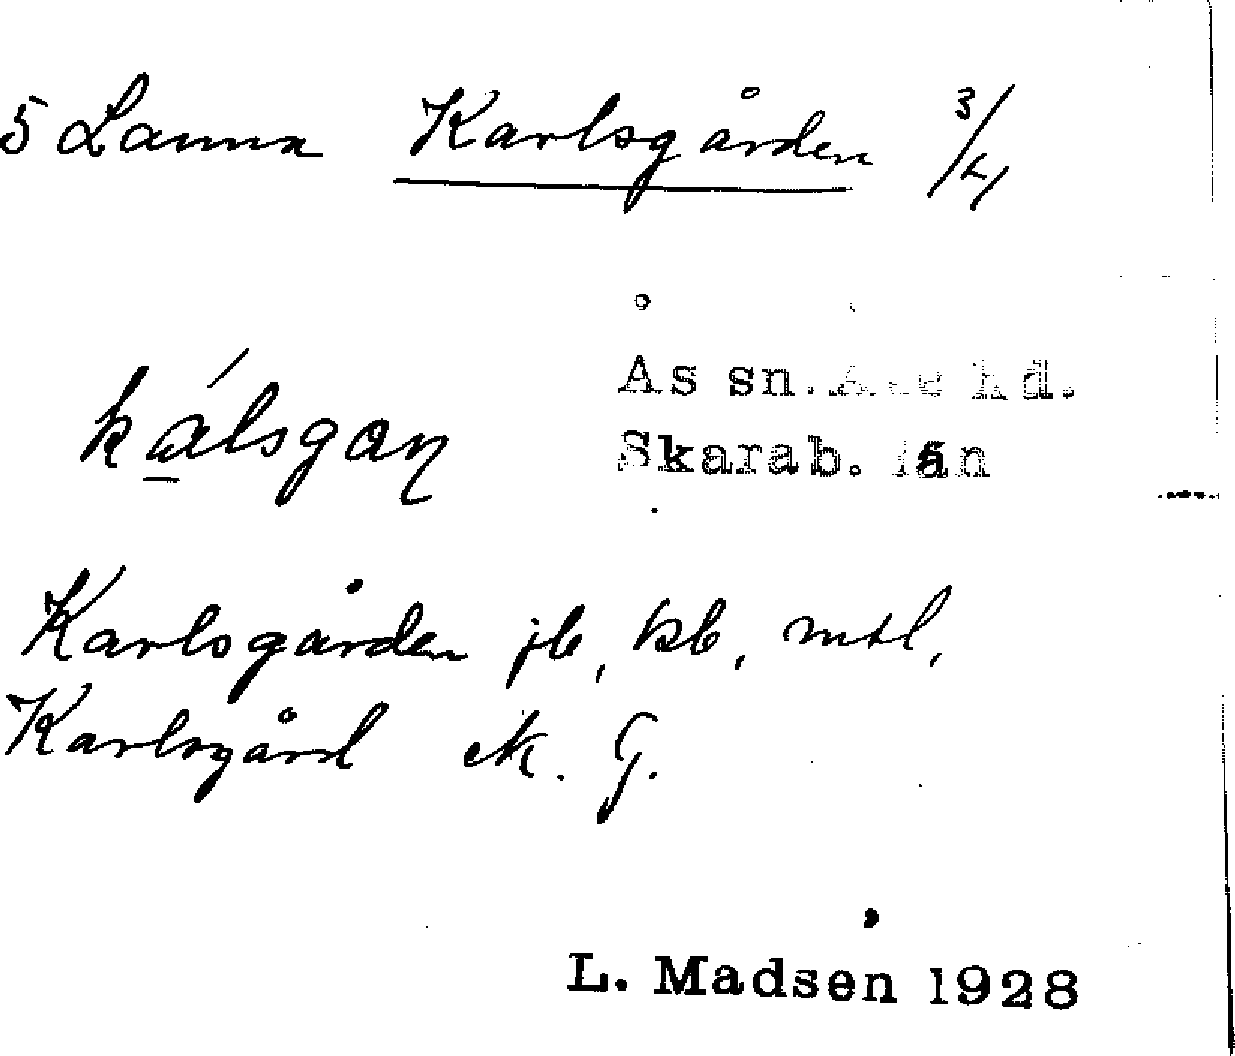 5 Lanna Karlsgården 3/4
Ås sn. Åse hd.
kálsgaɳ
Skarab. län
Karlsgården jb, kb, mtl,
Karlsgård ek. G.
L. Madsen 1928